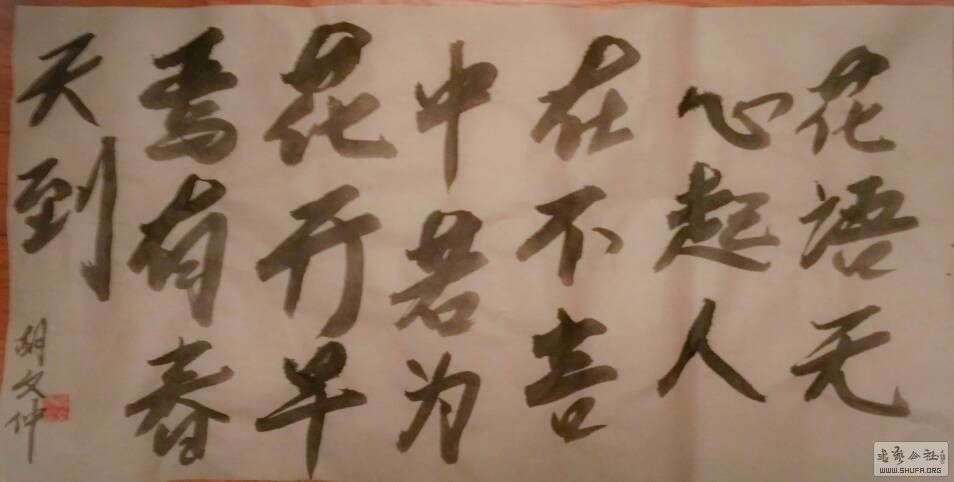 花語无
心起人
在不言
中若为
花开早
焉有春
天到
胡文仲
书藝公社
WWW.SHUFA.ORG